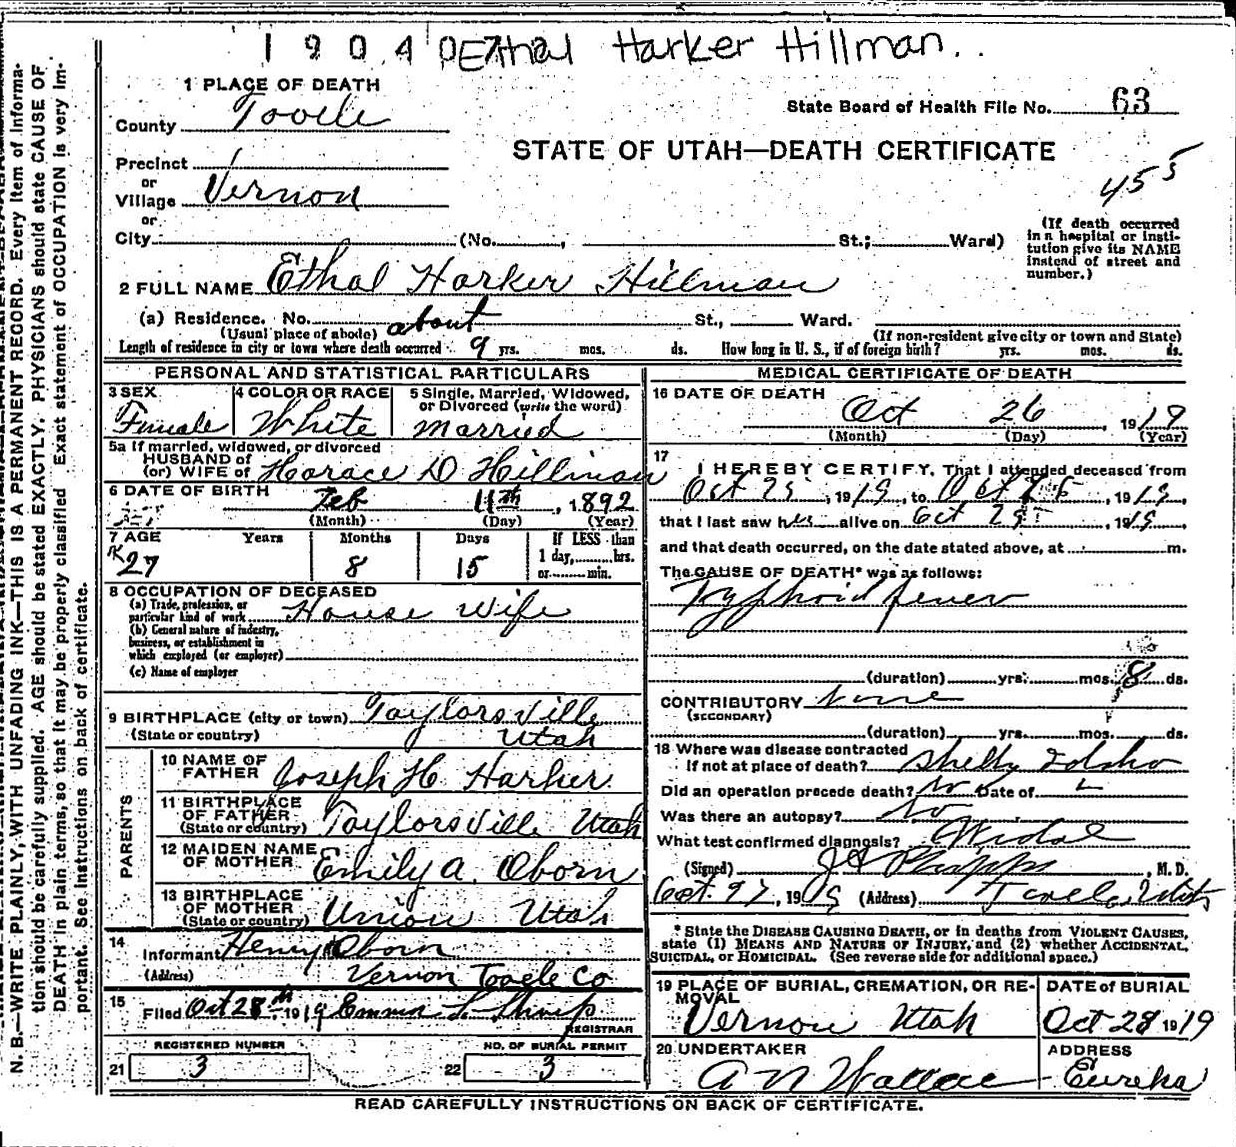 1904 Ethal Harker Hillman.
1 PLACE OF DEATH
County Tooele
State Board of Health File No. 63
STATE OF UTAH—DEATH CERTIFICATE
455
Precinct
or
Village Vernon
or
City (No. , St.; Ward)
(If death occurred in a hospital or institution give its NAME instead of street and number.)
2 FULL NAME Ethal Harker Hillman
(a) Residence. No. St., Ward.
(Usual place of abode) (If non-resident give city or town and State)
Length of residence in city or town where death occurred about 9 yrs. mos. ds. How long in U. S., if of foreign birth? yrs. mos. ds.
PERSONAL AND STATISTICAL PARTICULARS
3 SEX Female
4 COLOR OR RACE White
5 Single, Married, Widowed, or Divorced (write the word) Married
5a If married, widowed, or divorced
HUSBAND of
(or) WIFE of Horace D Hillman
6 DATE OF BIRTH Feb 11th, 1892
(Month) (Day) (Year)
7 AGE Years Months Days If LESS than
27 8 15 1 day, hrs.
or min.
8 OCCUPATION OF DECEASED
(a) Trade, profession, or particular kind of work House Wife
(b) General nature of industry, business, or establishment in which employed (or employer)
(c) Name of employer
9 BIRTHPLACE (city or town) Taylorsville
(State or country) Utah
PARENTS
10 NAME OF FATHER Joseph H. Harker
11 BIRTHPLACE OF FATHER (State or country) Taylorsville Utah
12 MAIDEN NAME OF MOTHER Emily A. Oborn
13 BIRTHPLACE OF MOTHER (State or country) Union Utah
14 Informant Henry Oborn
(Address) Vernon Tooele Co
15 Filed Oct 28th 1919 Emma
REGISTRAR
REGISTERED NUMBER
21 3
NO. OF BURIAL PERMIT
22 3
MEDICAL CERTIFICATE OF DEATH
16 DATE OF DEATH
Oct 26, 1919
(Month) (Day) (Year)
17
I HEREBY CERTIFY, That I attended deceased from
Oct 25, 1919, to Oct 26, 1919
that I last saw her alive on Oct 25, 1919
and that death occurred, on the date stated above, at m.
The CAUSE OF DEATH* was as follows:
Typhoid fever
(duration) yrs. mos. 8 ds.
CONTRIBUTORY none
(SECONDARY)
(duration) yrs. mos. ds.
18 Where was disease contracted
If not at place of death? Shelly Idaho
Did an operation precede death? No Date of
Was there an autopsy? No
What test confirmed diagnosis? Widal
(Signed) J A Phipps, M. D.
Oct. 27, 1919 (Address) Tooele, Utah
* State the DISEASE CAUSING DEATH, or in deaths from VIOLENT CAUSES,
state (1) MEANS AND NATURE OF INJURY, and (2) whether ACCIDENTAL,
SUICIDAL, or HOMICIDAL. (See reverse side for additional space.)
19 PLACE OF BURIAL, CREMATION, OR REMOVAL
Vernon Utah
DATE of BURIAL
Oct 28 1919
20 UNDERTAKER
A N Wallace
ADDRESS
Eureka
READ CAREFULLY INSTRUCTIONS ON BACK OF CERTIFICATE.
N. B.—WRITE PLAINLY, WITH UNFADING INK—THIS IS A PERMANENT RECORD. Every item of information
should be carefully supplied. AGE should be stated EXACTLY. PHYSICIANS should state CAUSE OF
DEATH in plain terms, so that it may be properly classified. Exact statement of OCCUPATION is very important.
See instructions on back of certificate.